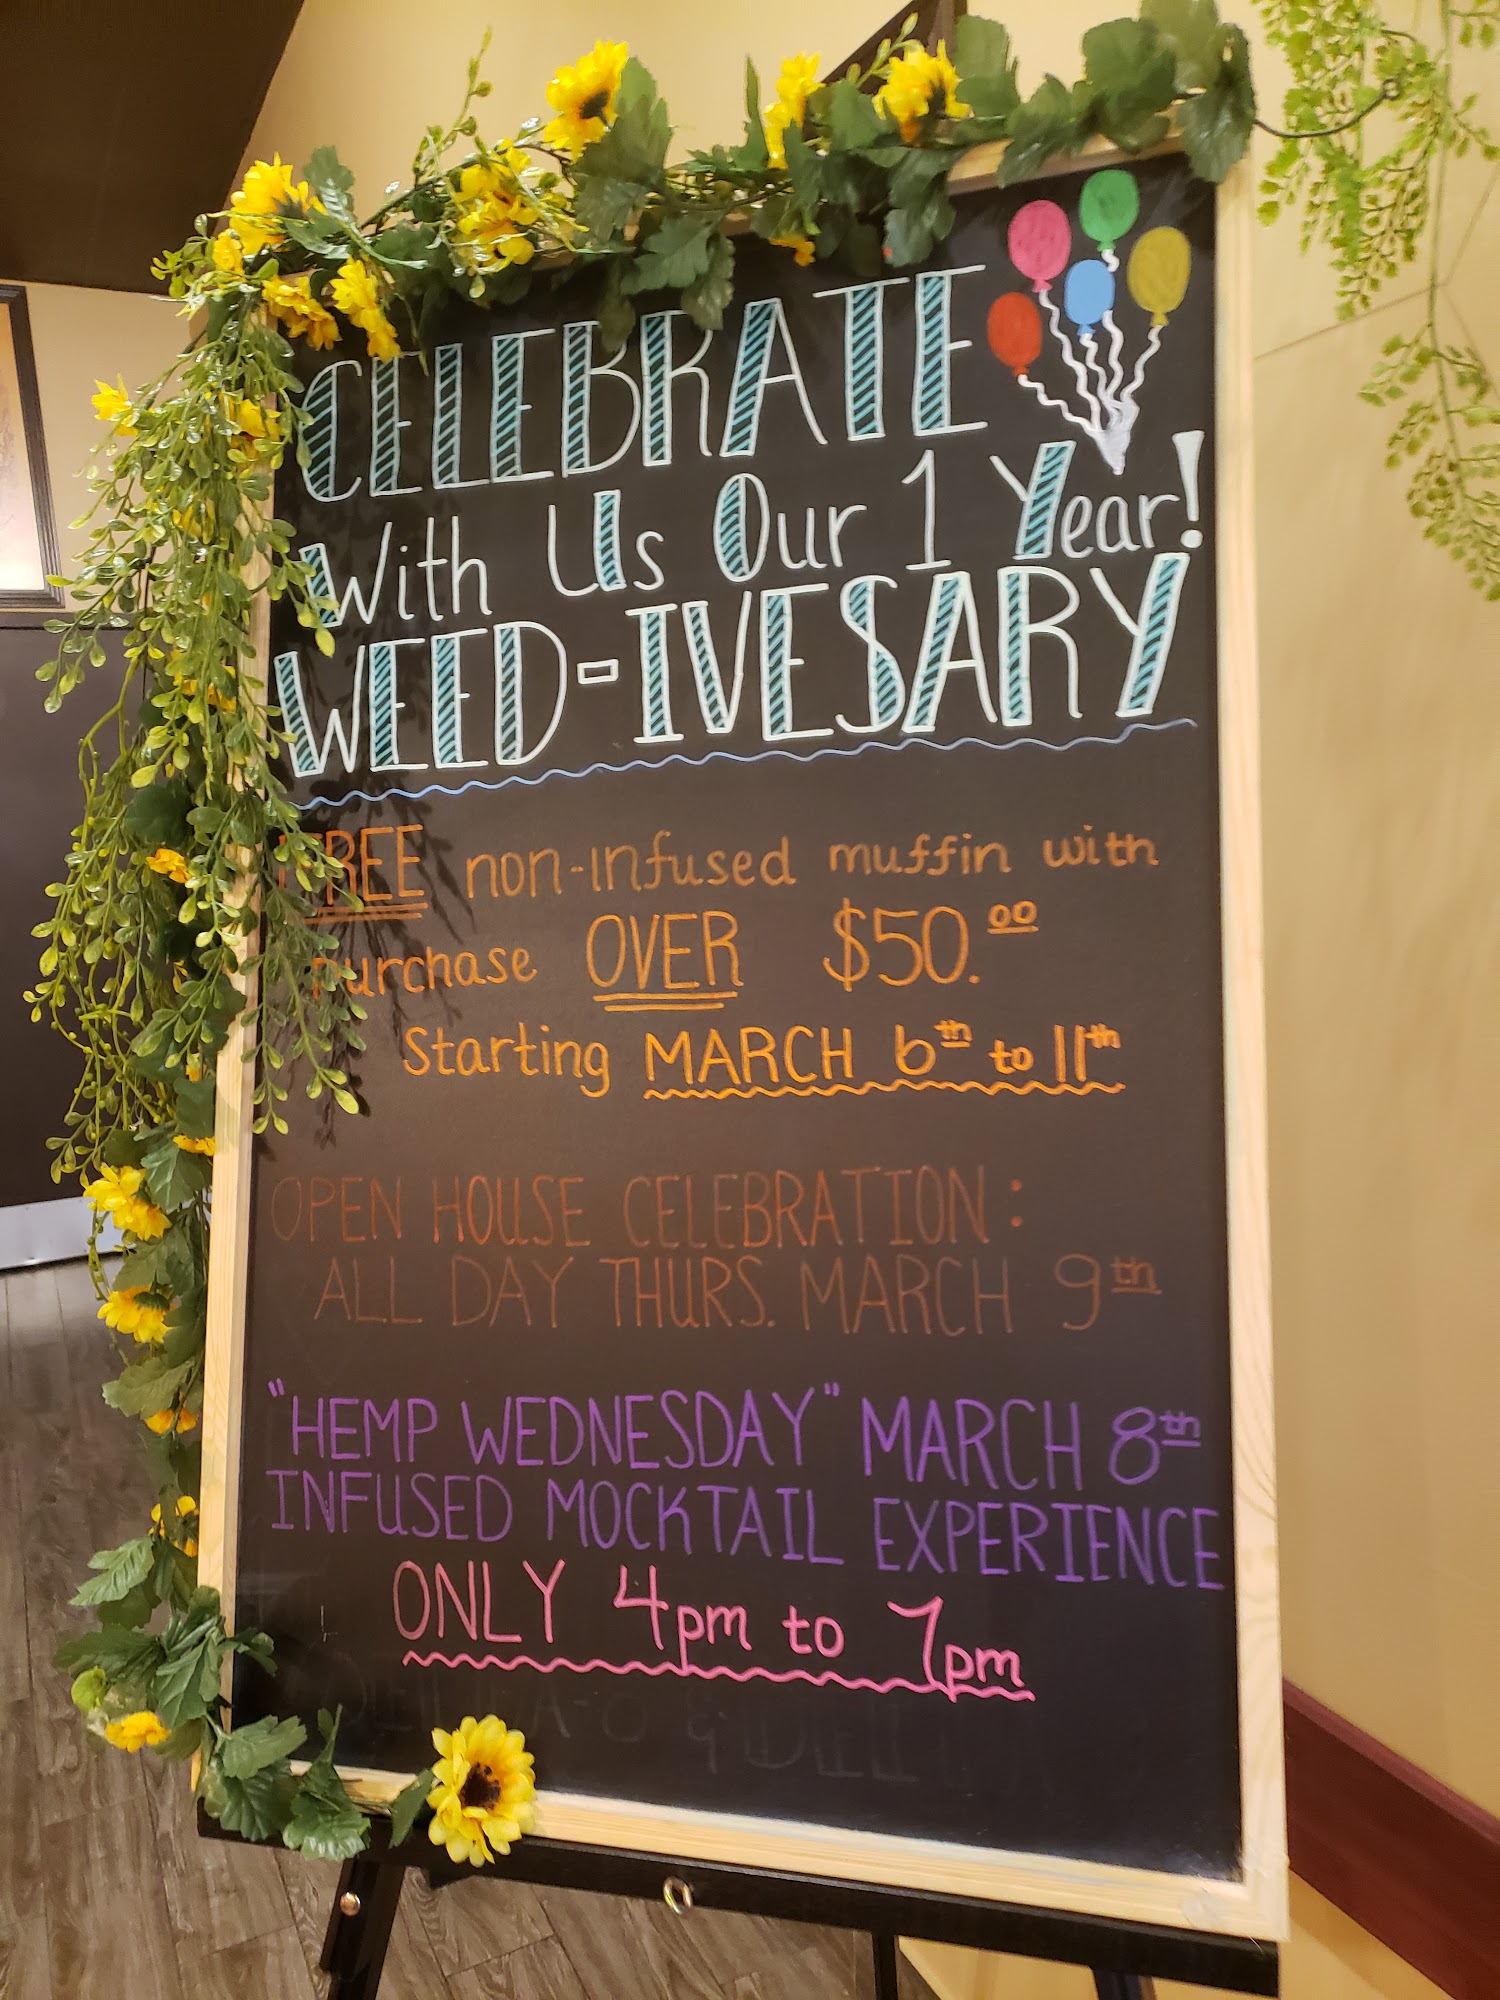 CELEBRATE
With Us Our 1 Year!
WEED-IVESARY
FREE non-infused muffin with
purchase OVER $50.00
Starting MARCH 6th to 11th
OPEN HOUSE CELEBRATION:
ALL DAY THURS. MARCH 9th
"HEMP WEDNESDAY" MARCH 8th
INFUSED MOCKTAIL EXPERIENCE
ONLY 4pm to 7pm